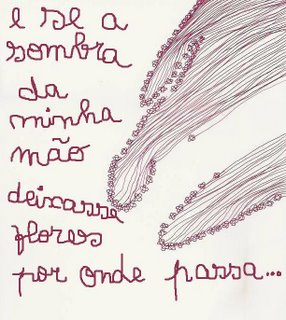 e se a
sombra
da
minha
mão
deixasse
flores
por onde passa...